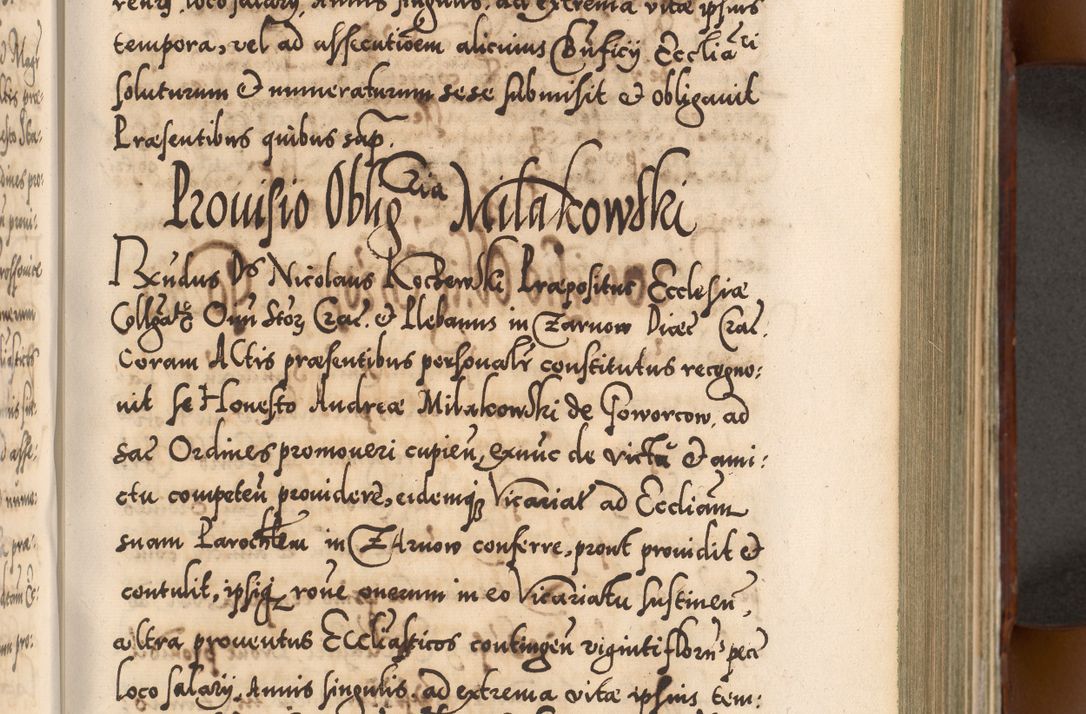 renſ, loco salarÿ, Annis singulis, ad extrema vitæ ipsius
tempora, vel ad assecutiõem alicuius Bñficÿ Eccliãri
soluturum & numeraturum sese submisit & obligauit
Præsentibus quibus sup.
Prouisio Obligria Milakowski
Rxñdus Ds Nicolaus Kochewski Præpositus Ecclesiæ
Collgatæ Oïnũ Stor Crac. & Plebanus in Czarnow Diæc Crac.
Coram Actis præsentibus personalr constitutus recogno:
uit se Honesto Andreæ Milakowski de Goworcow, ad
sac Ordines promoueri cupieñ, exnũc de victũ & ami:
ctu competeñ prouidere, eidemq Vicariat ad Eccliam
suam Parochlem in Czarnow conferre, prout prouidit &
contulit, ipsiq roue onerum in eo Vicariatu sustineñ,
ultra prouentus Eccliasticos contingeñ viginti florñ pec
loco salarÿ, Annis singulis, ad extrema vitæ ipsius tem: